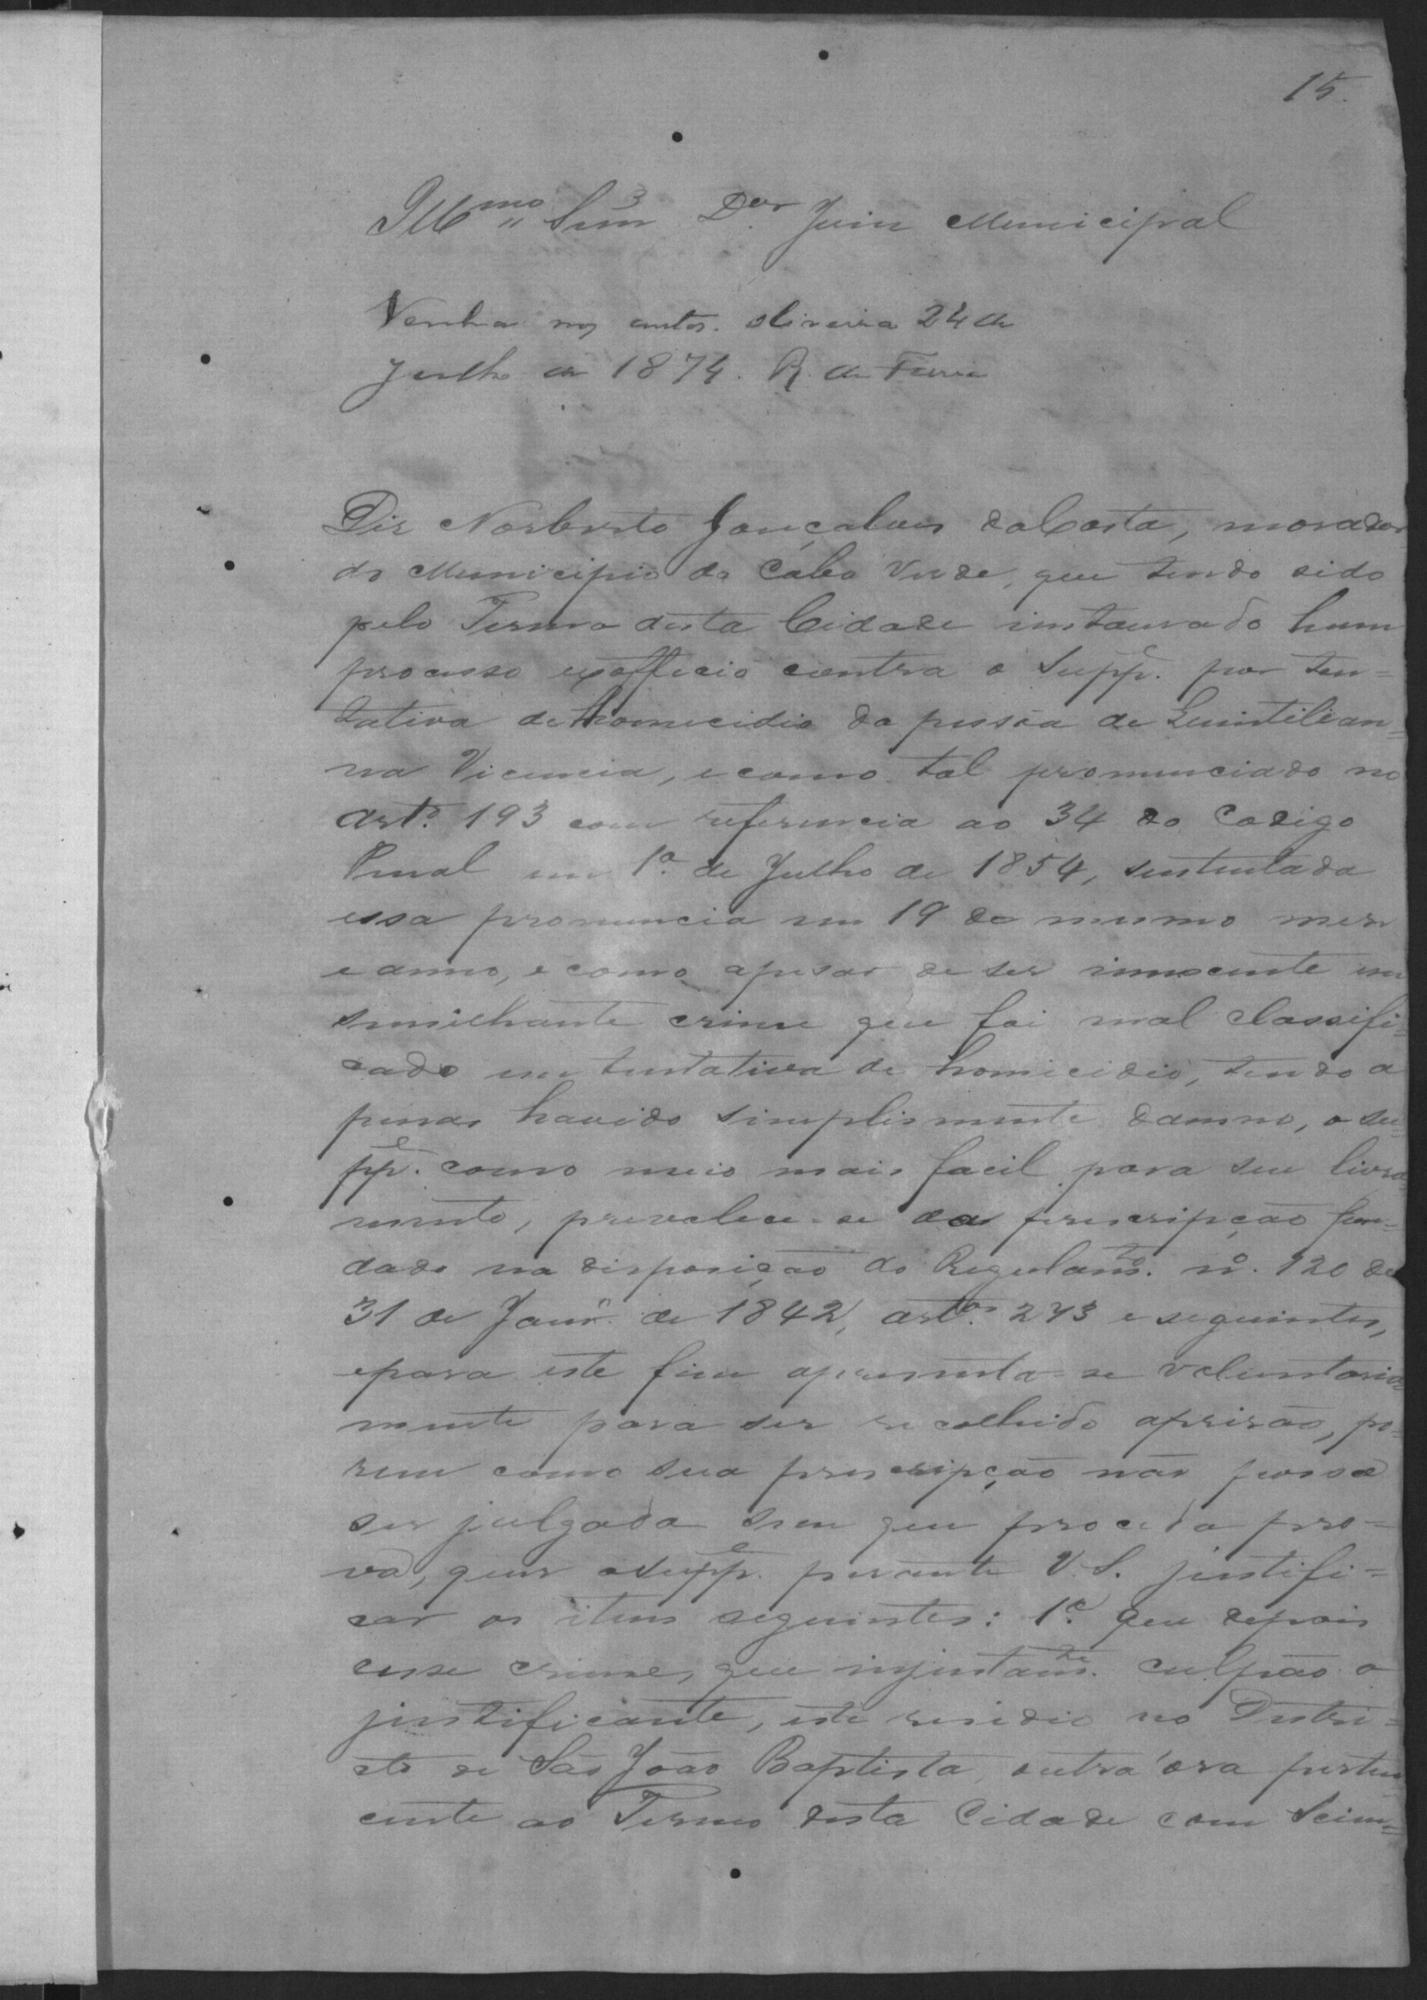 15.
Illmo Snr Dor Juiz Municipal
Venha nos autos. Oliveira 24 de
Julho de 1874. R. de
Diz Norberto Gonçalves da Costa, morador
do Municipio do Cabo Verde, que tendo sido
pelo Termo desta Cidade instaurado hum
processo exofficio contra o Suppe. por ten=
tativa de homicidio da pessoa de Quintilian=
na Vicencia, e como tal pronunciado no
arto. 193 com referencia ao 34 do Codigo
Penal em 1º de Julho de 1854, sustentada
essa pronuncia em 19 do mesmo mes
e anno, e como apesar de ser innocente em
similhante crime que foi mal classifi=
cado em tentativa de homicidio, tendo a
penas havido simplismente damno, o su=
ppe. como meio mais facil para seu livra=
mento, prevalece-se da prescripção fun=
dado na disposição do Regulamto. nº. 120 de
31 de Janro. de 1842, artos. 273 e seguintes,
epara este fim apresenta-se voluntaria=
mente para ser recolhido aprisão, po=
rem como sua prescripção não possa
ser julgada sem que proceda pro=
va, quer osuppe. perante V.S. justifi=
car os itens seguintes: 1º. Que depois
esse crime, que injustamte. culpão o
justificante, este residio no Distri=
cto de São João Baptista, outra'ora perten
cente ao Termo desta Cidade com Scien=